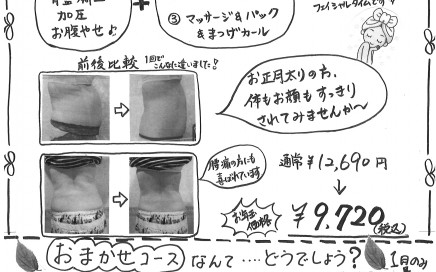 加圧
お腹やせ♪
+
③ マッサージ&パック
&まつげカール
フェイシャルタイムです!
前後比較 1回でこんなに違いました!
お正月太りの方、
体もお顔もすっきり
されてみませんか〜
腰痛の方にも
喜ばれています
通常 ¥12,690円
お年玉
価格
¥9,720(税込)
おまかせコース なんて ‥‥どうでしょう? 1月のみ